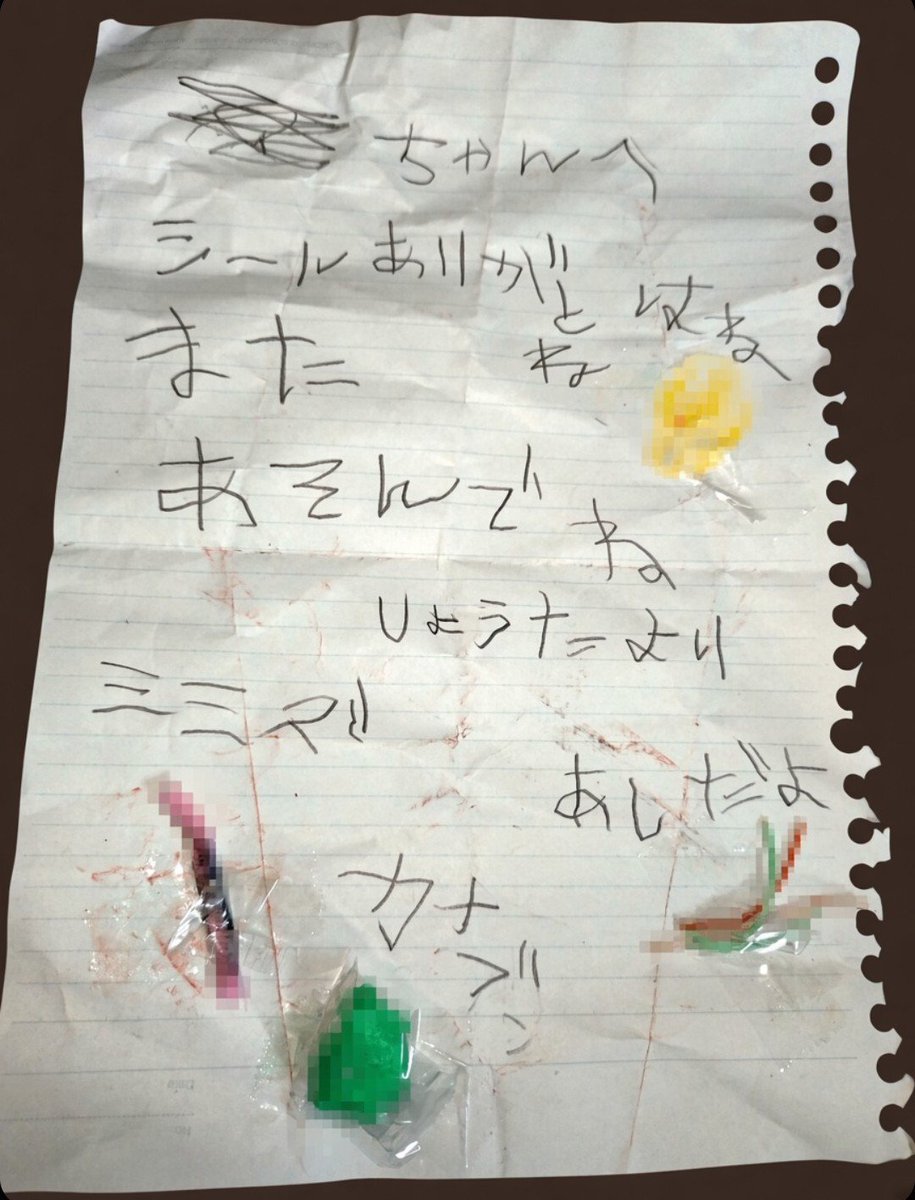 ちゃんへ
シールありがとね
はね
また
あそんでね
しょうたより
ミミズ
あしだよ
カナブン